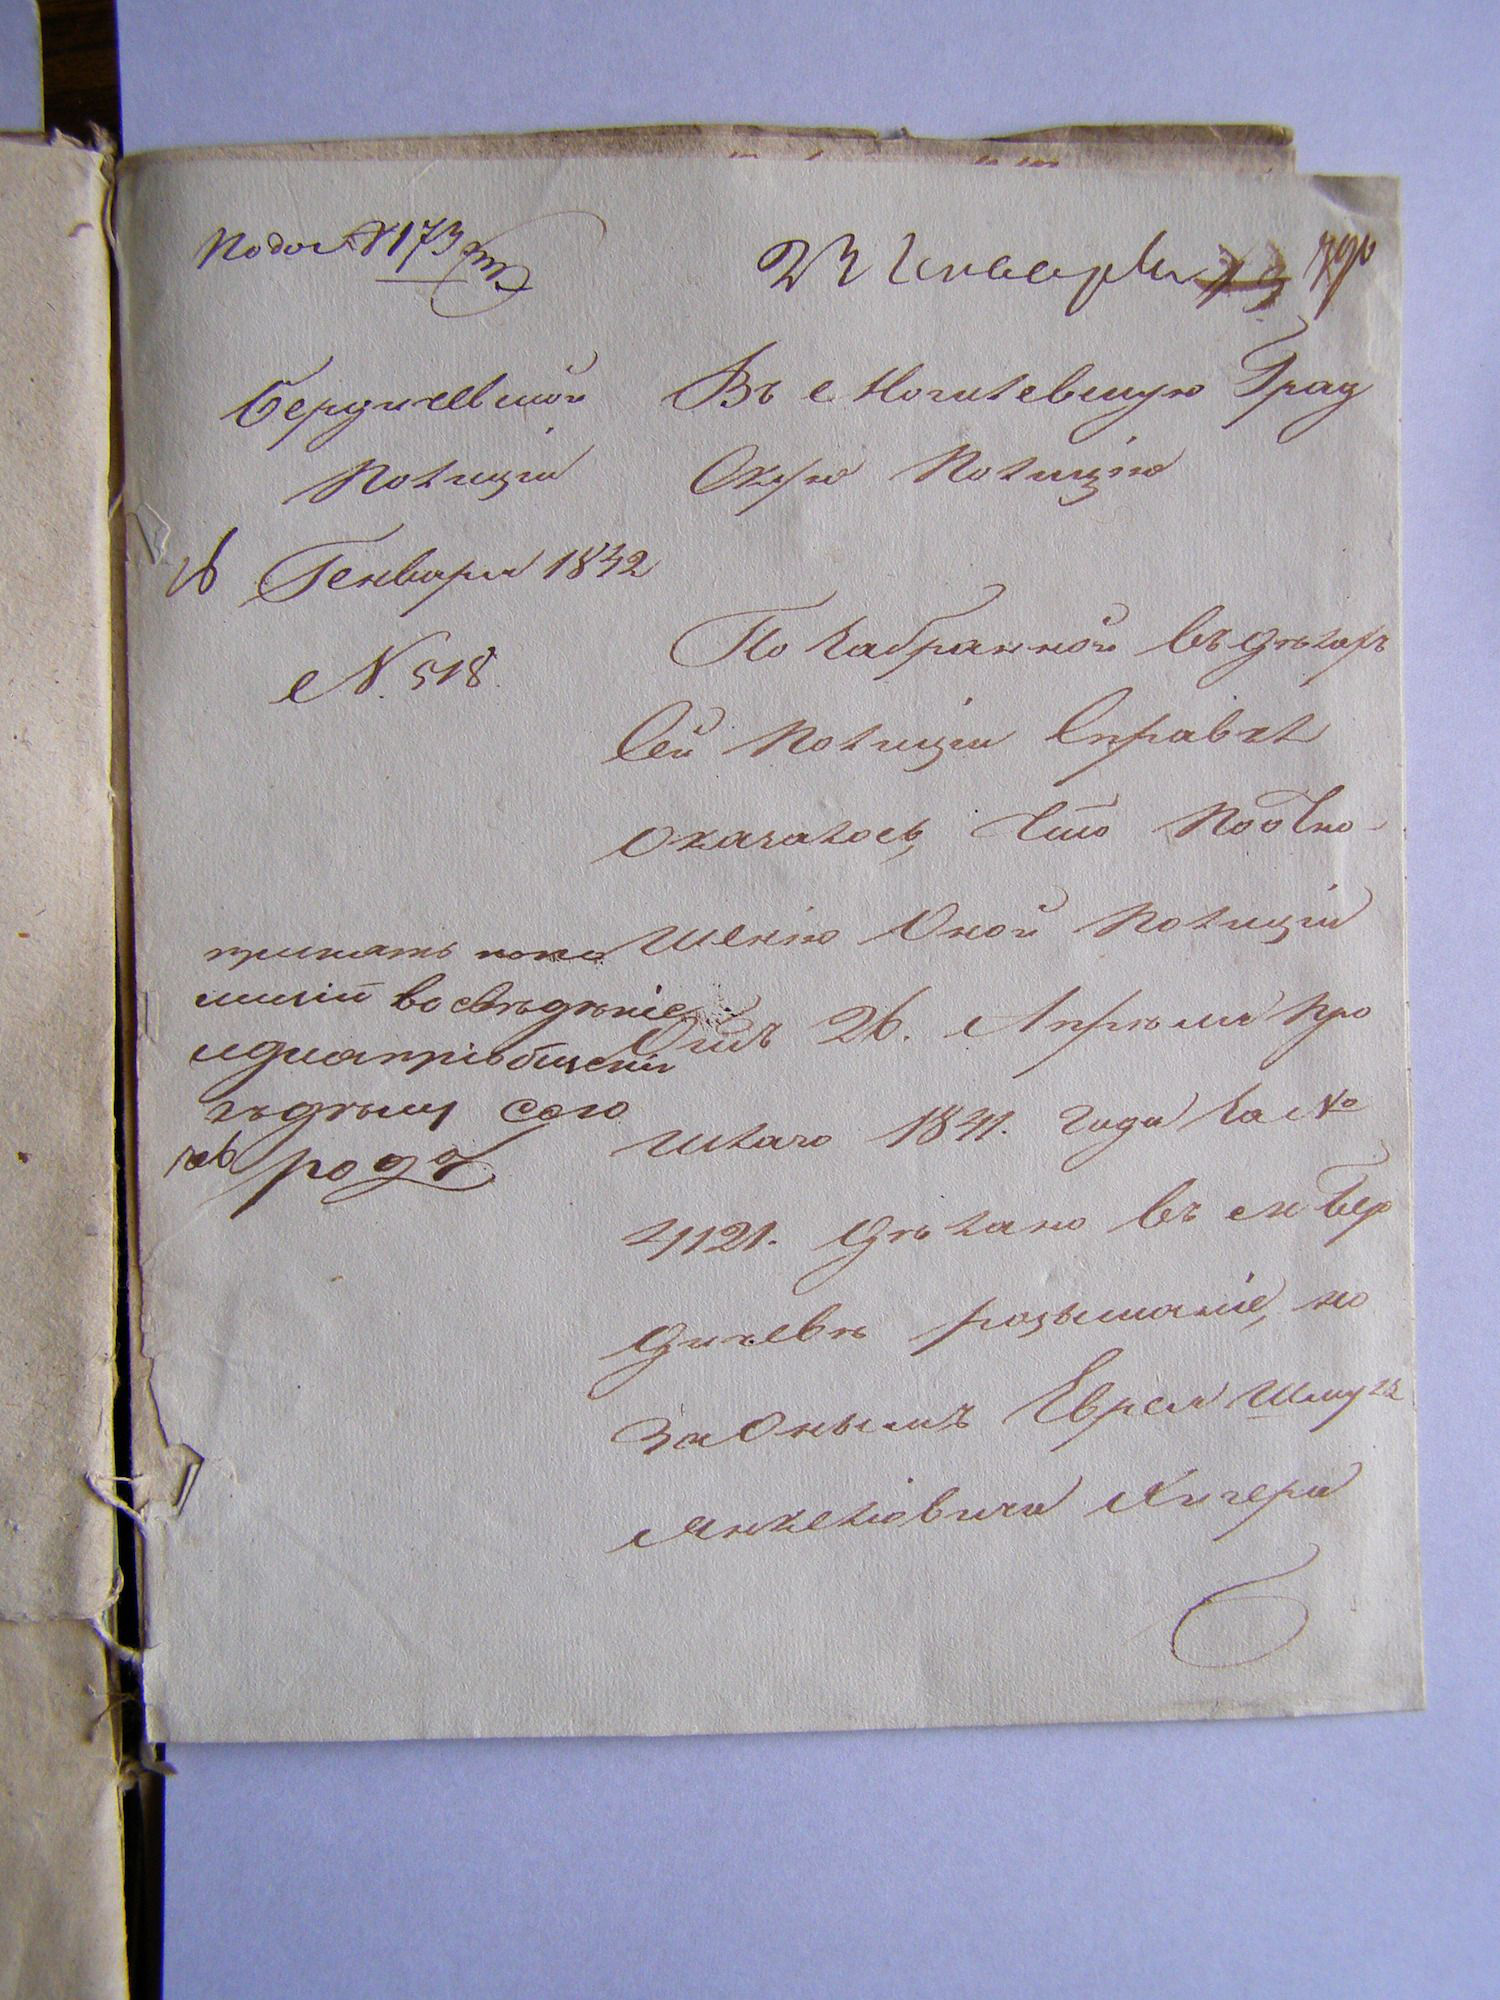 По док № 173
23 Генваря
Бердичевской
Полиціи
16 Генваря 1842
№. 518.
Въ Могилевскую Град
скую Полицію
По забранной въ делахъ
сей Полиціи справке
оказалось, что по отно-
шенію оной Полиціи
отъ 26. Апреля про
шлаго 1841. года за №
4121. делано въ м Бер
дичеве розысканіе, но
за онымъ Еврея Шмуля
Янкелевича Кигера
принять
во сведеніе
и для пріобщенія
къ делу сего
рода